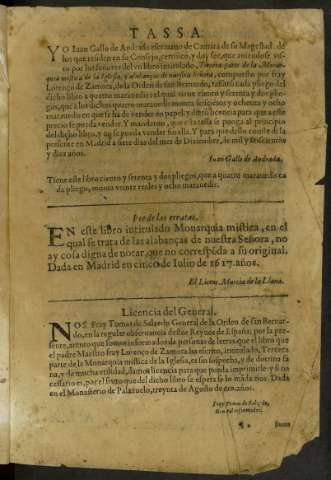 TASSA.
YO Iuan Gallo de Andrada escriuano de Camara de su Magestad, de
los que residen en su Consejo, certifico, y doy fee, que auiendose visto
por los señores del vn libro intitulado, Tercera parte de la Monar-
quia mistica de la Iglesia, y alabanças de nuestra Señora, compuesto por fray
Lorenço de Zamora, de la Orden de san Bernardo, tassaron cada pliego del
dicho libro a quatro marauedis el qual tiene ciento y setenta y dos plie-
gos, que a los dichos quatro marauedis monta seiscientos y ochenta y ocho
marauedis en que se ha de vender en papel: y dieron licencia para que a este
precio se pueda vender. Y mandaron, que esta tassa se ponga al principio
del dicho libro, y no se pueda vender sin ella. Y para que dello conste di la
presente en Madrid a siete dias del mes de Diziembre, de mil y seiscientos
y diez años.
Iuan Gallo de Andrada.
Tiene este libro ciento y setenta y dos pliegos, que a quatro marauedis ca
da pliego, monta veinte reales y ocho marauedis.
Fee de las erratas.
EN este libro intitulado Monarquia mistica, en el
qual se trata de las alabanças de nuestra Señora, no
ay cosa digna de notar, que no correspõda a su original.
Dada en Madrid en cinco de Iulio de 1617. años.
El Licen. Murcia de la Llana.
Licencia del General.
NOS Fray Tomas de Salazar General de la Orden de san Bernar-
do, en la regular obseruancia destos Reynos de España, por la pre-
sente, atento que somos informados de personas de letras que el libro que
el padre Maestro fray Lorenço de Zamora has escrito, intitulado, Tercera
parte de la Monarquia mistica de la Iglesia, es sin sospecha, y de doctrina sa
na, y de mucha vtilidad, damos licencia para que pueda imprimirle: y si ne
cessario es, por el fruto que del dicho libro se espera se lo mãdamos. Dada
en el Monasterio de Palazuelo, treynta de Agosto de años.
Fray Tomas de Salazar,
General reformador.
Suma